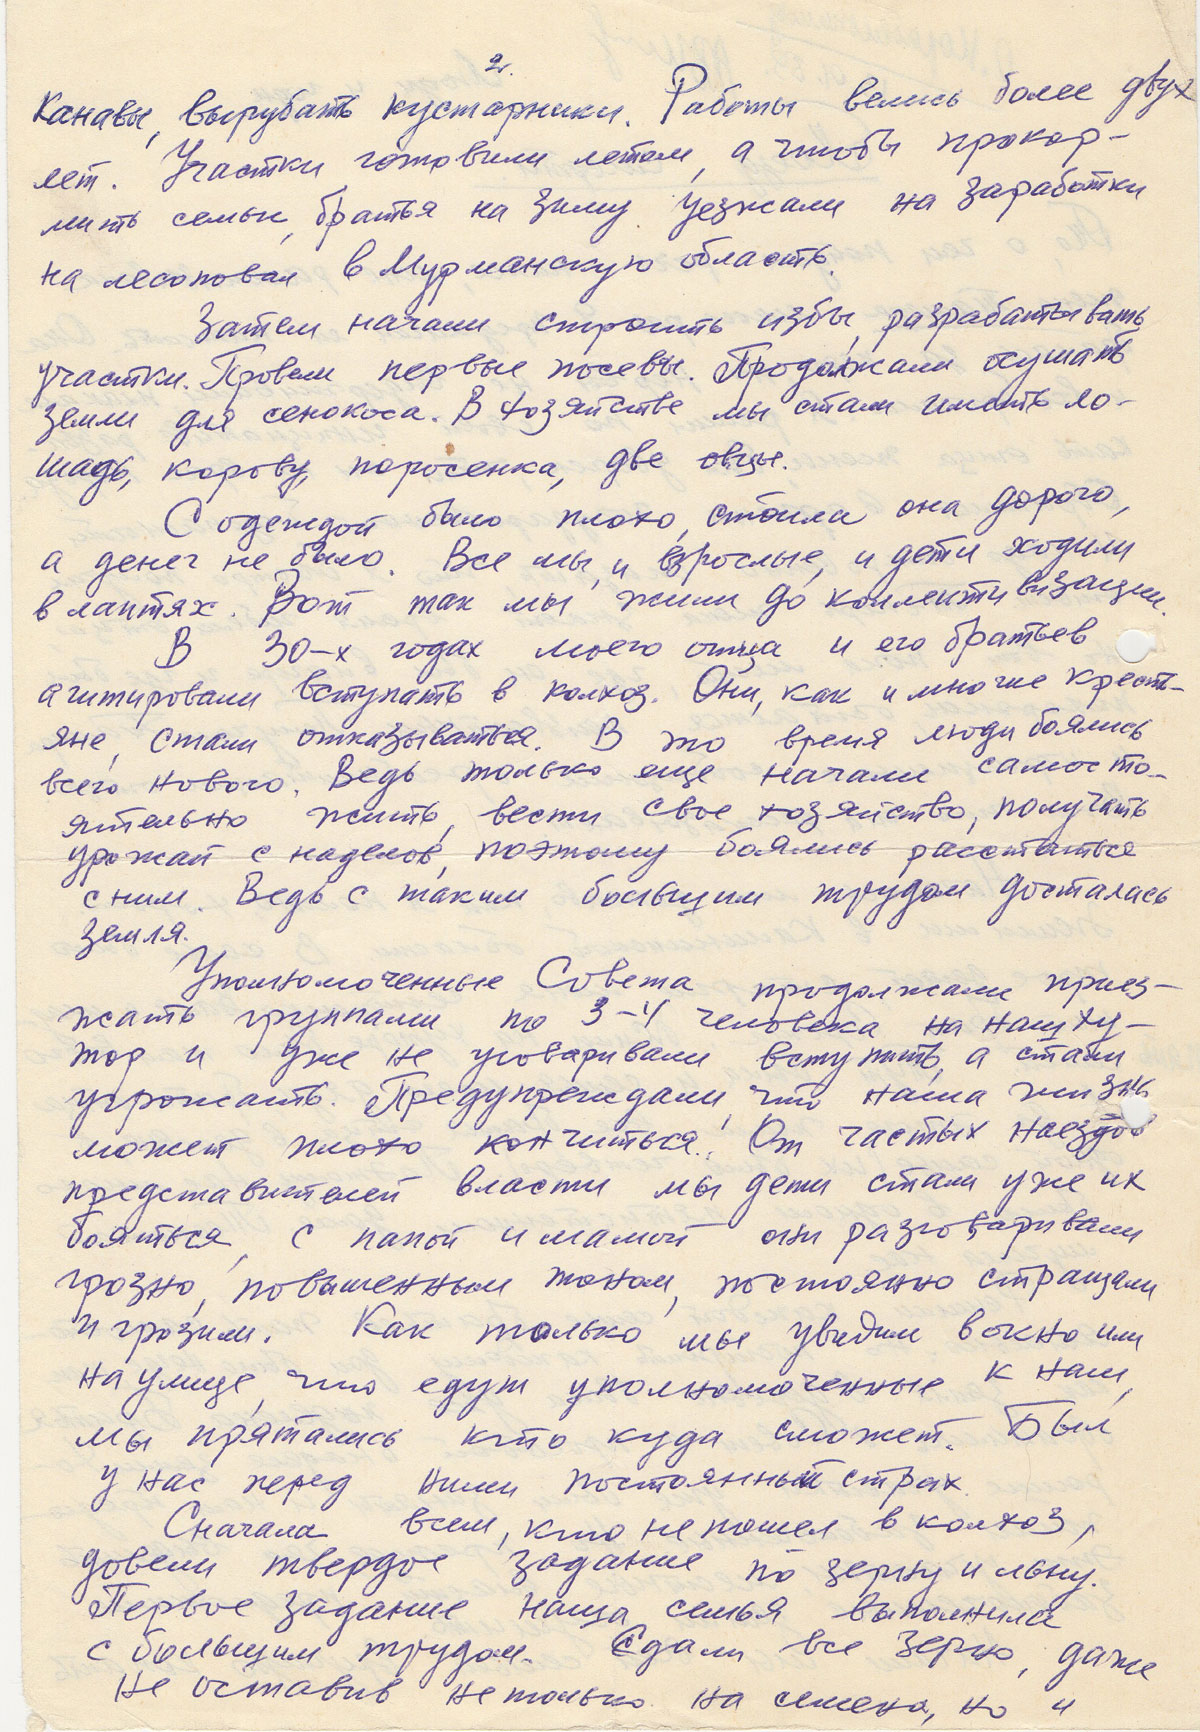 2.
канавы, вырубать кустарники. Работы велись более двух
лет. Участки готовили летом, а чтобы прокор-
мить семьи, братья на зиму уезжали на заработки
на лесоповал в Мурманскую область.
Затем начали строить избы, разрабатывать
участки. Провели первые посевы. Продолжали осушать
земли для сенокоса. В хозяйстве мы стали иметь ло-
шадь, корову, поросенка, две овцы.
С одеждой было плохо, стоила она дорого,
а денег не было. Все мы, и взрослые, и дети ходили
в лаптях. Вот так мы жили до коллективизации.
В 30-х годах моего отца и его братьев
агитировали вступать в колхоз. Они, как и многие кресть-
яне, стали отказываться. В то время люди боялись
всего нового. Ведь только еще начали самосто-
ятельно жить, вести свое хозяйство, получать
урожай с наделов, поэтому боялись расстаться
с ним. Ведь с таким большим трудом досталась
земля.
Уполномоченные Совета продолжали приез-
жать группами по 3-4 человека на наш ху-
тор и уже не уговаривали вступить, а стали
угрожать. Предупреждали, что наша жизнь
может плохо кончиться. От частых наездов
представителей власти мы дети стали уже их
бояться, с папой и мамой они разговаривали
грозно, повышенным тоном, постоянно стращали
и грозили. Как только мы увидим в окно или
на улице, что едут уполномоченные к нам,
мы прятались кто куда сможет. Был
у нас перед ними постоянный страх.
Сначала всем, кто не пошел в колхоз,
довели твердое задание по зерну и льну.
Первое задание наша семья выполнила
с большим трудом. Сдали все зерно, даже
не оставив не только на семена, но и